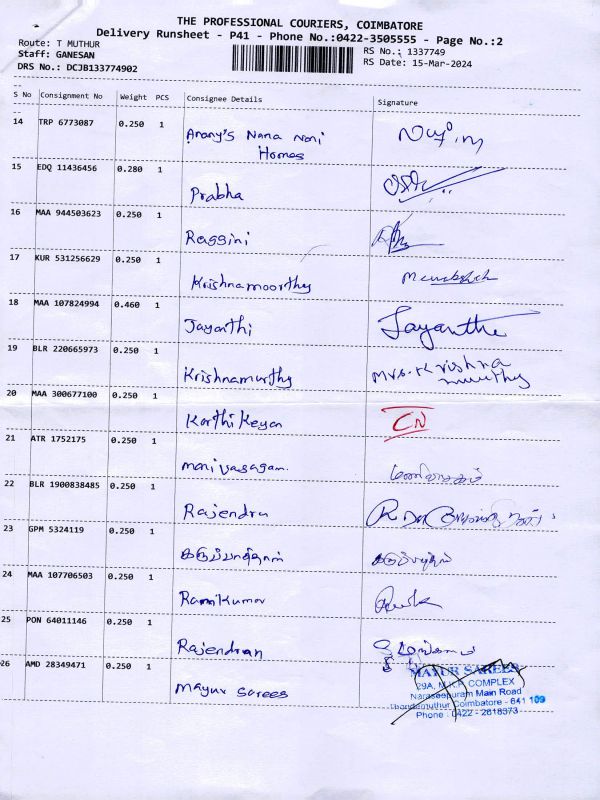 THE PROFESSIONAL COURIERS, COIMBATORE
Delivery Runsheet - P41 - Phone No.:0422-3505555 - Page No.:2
Route: T MUTHUR
RS No.: 1337749
Staff: GANESAN
RS Date: 15-Mar-2024
DRS No.: DCJB133774902
S No Consignment No Weight PCS Consignee Details Signature
14 TRP 6773087 0.250 1 Anany's Nana Nani
Homes
15 EDQ 11436456 0.280 1 Prabha
16 MAA 944503623 0.250 1 Raggini
17 KUR 531256629 0.250 1 Krishnamoorthy
18 MAA 107824994 0.460 1 Jayanthi Jayanthi
19 BLR 220665973 0.250 1 Krishnamurthy Mrs. Krishna
murthy
20 MAA 300677100 0.250 1 Karthikeyan CN
21 ATR 1752175 0.250 1 manivasagam. மணிவாசகம்
22 BLR 1900838485 0.250 1 Rajendra
23 GPM 5324119 0.250 1 கருப்பாத்தாள்
24 MAA 107706503 0.250 1 Ramkumar
25 PON 64011146 0.250 1 Rajendran
26 AMD 28349471 0.250 1 Mayur Sarees
MAYUR SAREES
29A, COMPLEX
Naraseepuram Main Road
Thondamuthur Coimbatore - 641 109
Phone : 0422 - 2618373